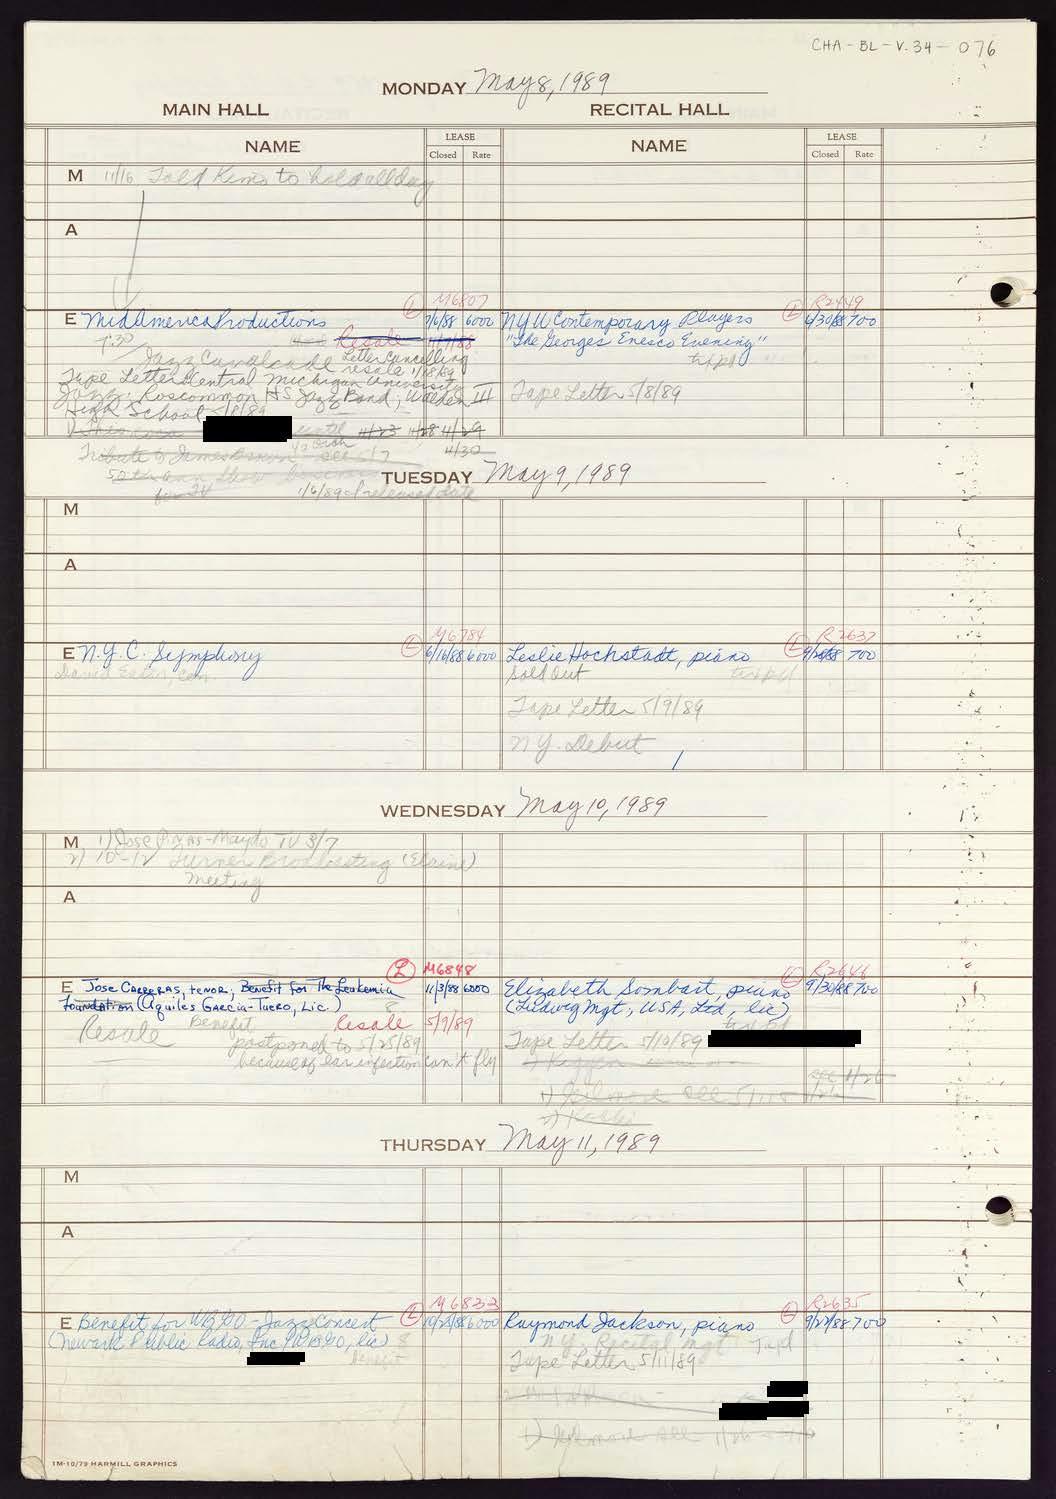 CHA-BL-V.34-076
MONDAY May 8, 1989
MAIN HALL RECITAL HALL
NAME LEASE Closed Rate NAME LEASE Closed Rate
M 11/16 Told Kims to hold all day
A
M6807 R2449
E MidAmerica Productions L 7/6/88 6000 NYU Contemporary Players L 6/30/88 700
7:30 Resale 11/7/88 "The Georges Enesco Evening"
Jazz Cavalcade Letter Cancelling resale 11/18/89 txtpd
Tape Letters Central Michigan University
Jazz; Roscommon HS Jazz Band; Walden III Tape Letter 5/8/89
High School 5/8/89
until 11/23 11/28 4/29
Tribute to James Brown - see 5/7 4/30
50th ann show
for TV 1/6/89 released date
TUESDAY May 9, 1989
M
A
M6784 R2637
E N.Y.C. Symphony L 6/16/88 6000 Leslie Hochstadt, piano L 700
David Eaton, con. Sold Out txtpd
Tape Letter 5/9/89
NY. Debut
WEDNESDAY May 10, 1989
M 1) Jose TV 3/7
2) 10-12 Turner Broadcasting (Elaine)
Meeting
A
L M6848 R2646
E Jose Carreras, tenor; Benefit for The Leukemia 11/3/88 6000 Elizabeth Sombart, piano L 9/30/88 700
Foundation (Aquiles Garcia-Tuero, Lic.) (Ludwig Mgt, USA, Ltd, lic)
Resale Benefit Resale 5/9/89 txtpd
postponed to 5/25/89 Tape Letter 5/10/89
because of ear infection can't fly
see 1/26
1) Gilmore see 5/11
2)
THURSDAY May 11, 1989
M
A
M6833 R2635
E Benefit for WBGO - Jazz Concert L 6000 Raymond Jackson, piano L 9/27/88 700
(Newark Public Radio, Inc./WBGO, lic) N.Y. Recital Mgt
Benefit Tape Letter 5/11/89
1) Gilmore see 1/26
1M-10/79 HARMILL GRAPHICS